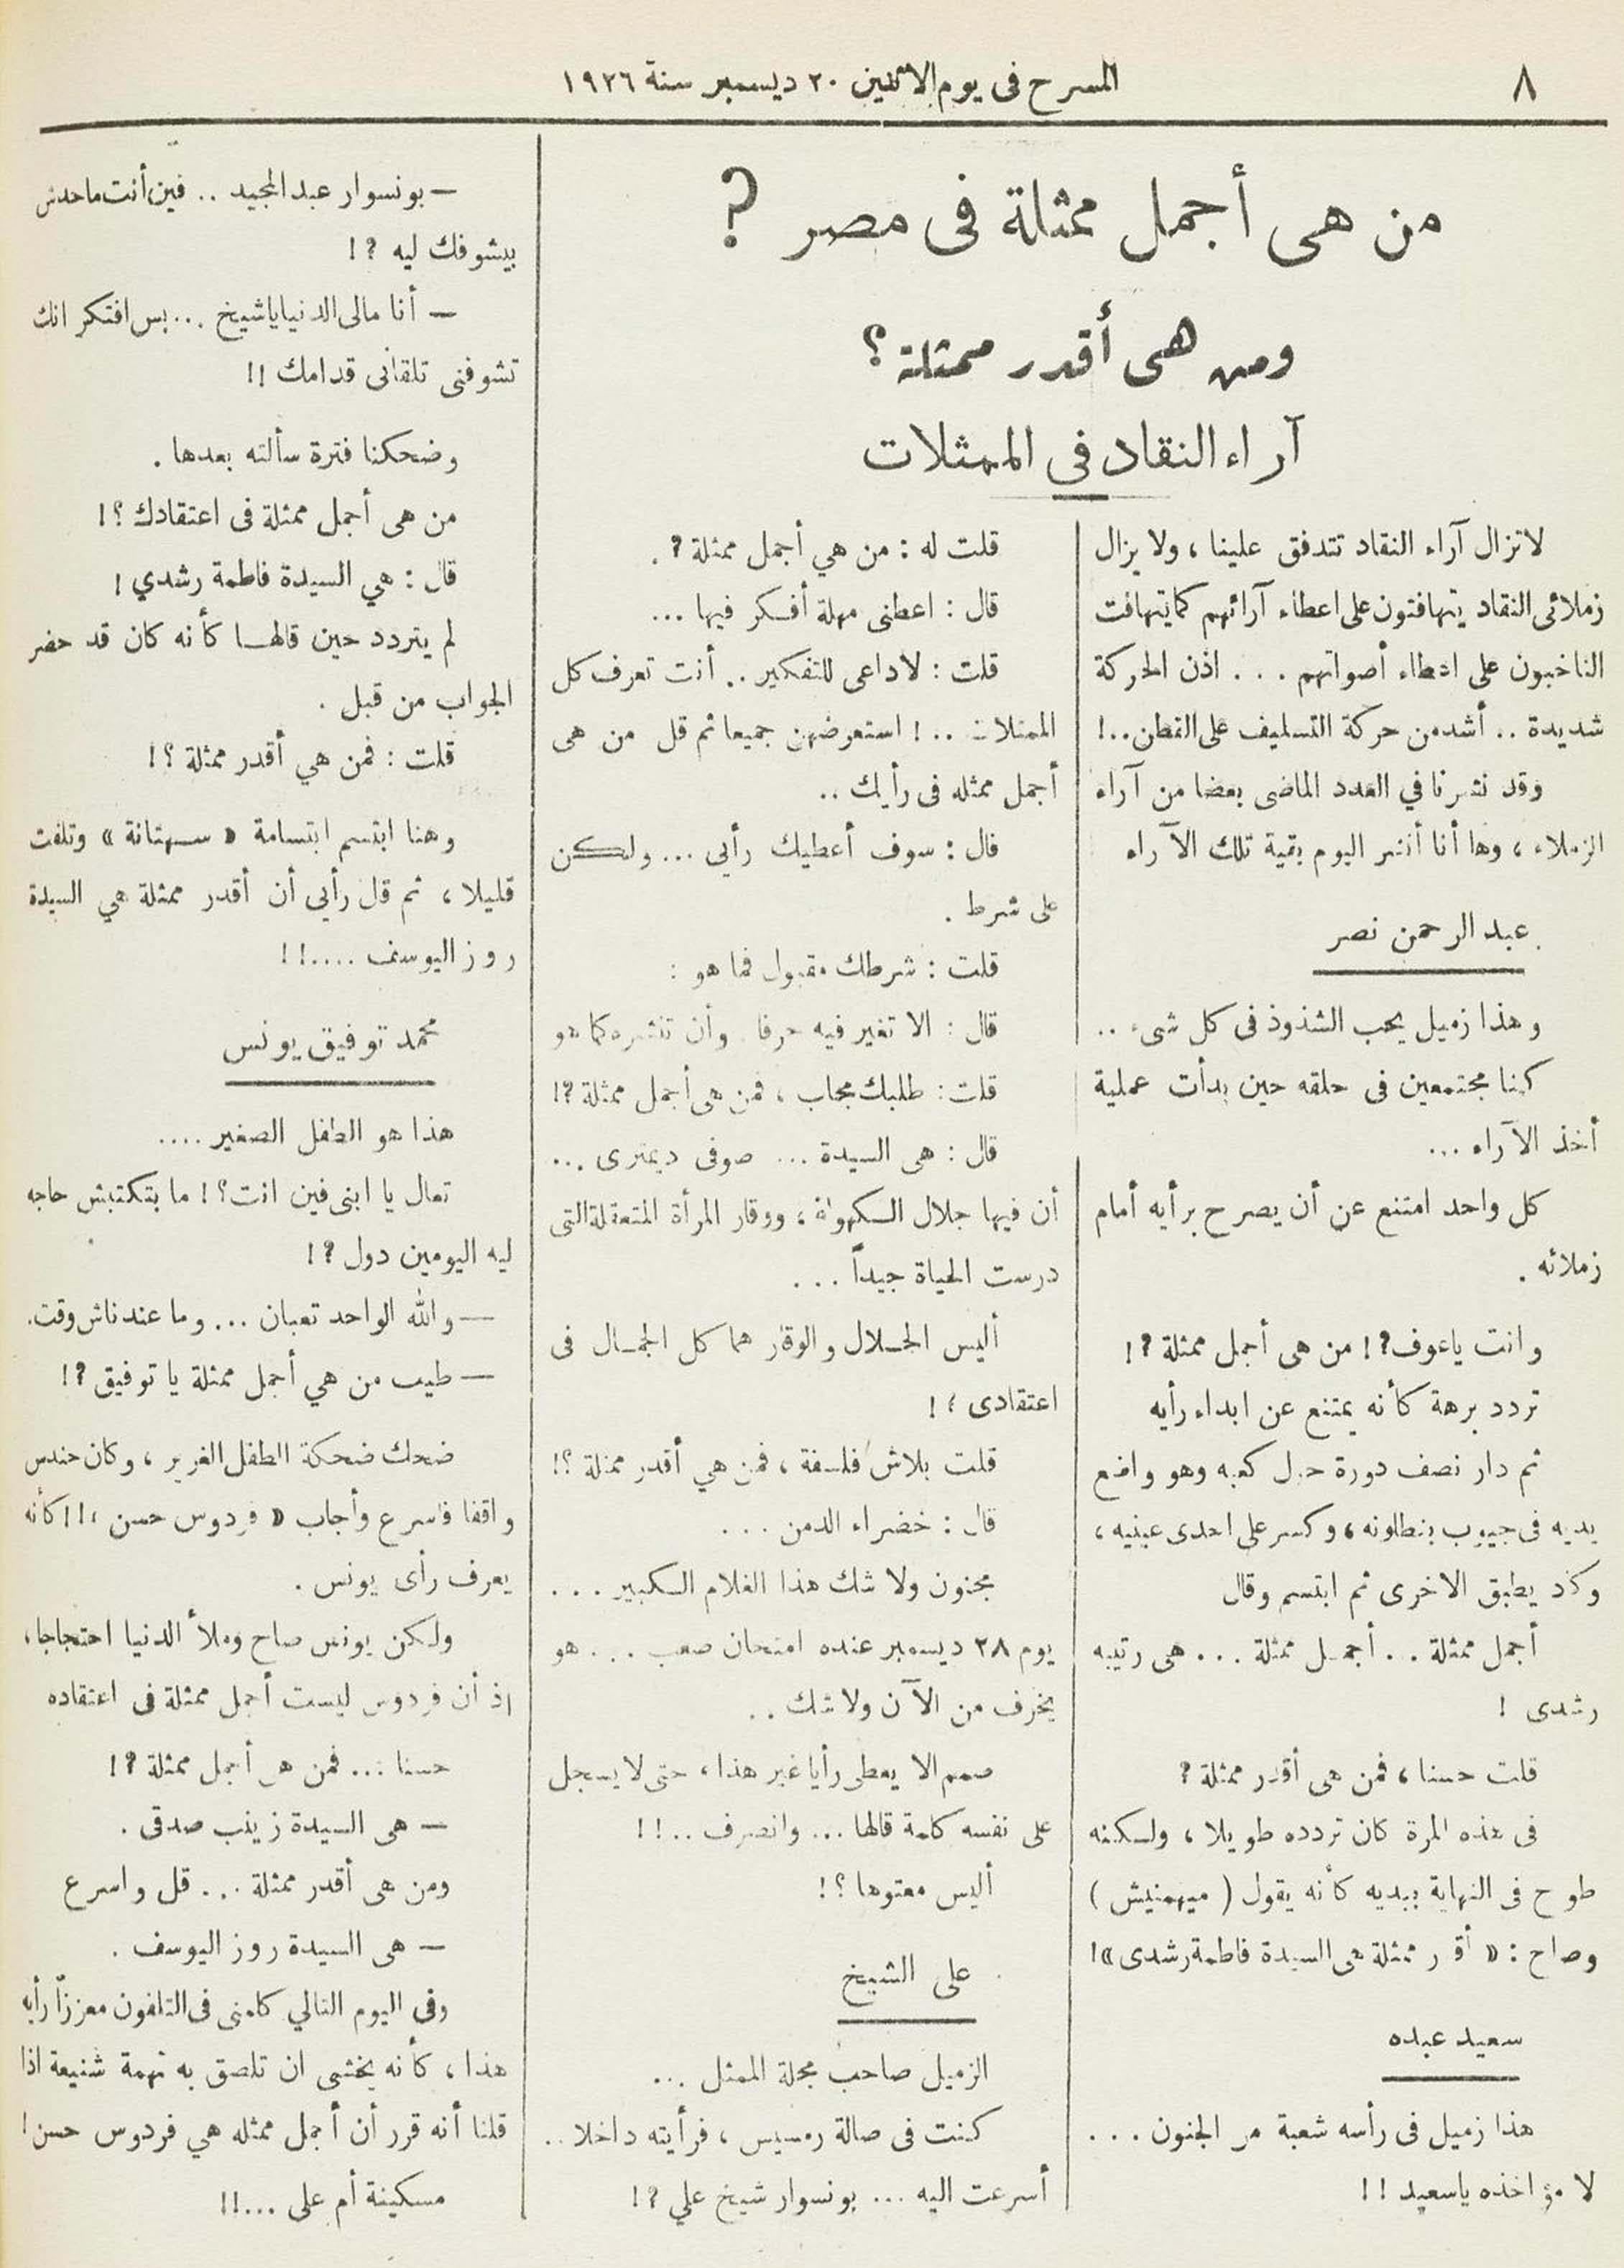 ٨
المسرح فى يوم الاثنين ٢٠ ديسمبر سنة ١٩٢٦
من هى أجمل ممثلة فى مصر ؟
ومن هى أقدر ممثلة ؟
آراء النقاد فى الممثلات
لاتزال آراء النقاد تتدفق علينا ، ولا يزال
زملائى النقاد يتهافتون على اعطاء آرائهم كما يتهافت
الناخبون على اعطاء أصواتهم . . . اذن الحركة
شديدة .. أشد من حركة التسليف على القطن ..!
وقد نشرنا في العدد الماضى بعضا من آراء
الزملاء ، وها أنا أنشر اليوم بقية تلك الآراء
عبد الرحمن نصر
وهذا زميل يحب الشذوذ فى كل شىء ..
كنا مجتمعين فى حلقه حين بدأت عملية
أخذ الآراء ...
كل واحد امتنع عن أن يصرح برأيه أمام
زملائه .
وانت ياعوف؟! من هى أجمل ممثلة ؟!
تردد برهة كأنه يمتنع عن ابداء رأيه
ثم دار نصف دورة حول كعبه وهو واضع
يديه فى جيوب بنطلونه ، وكسر على احدى عينيه ،
وكاد يطبق الاخرى ثم ابتسم وقال
أجمل ممثلة . . أجمل ممثلة . . . هى رتيبه
رشدى !
قلت حسنا ، فمن هى أقدر ممثلة ؟
فى هذه المرة كان تردده طويلا ، ولكنه
طوح فى النهاية بيديه كأنه يقول ( ميهمنيش )
وصاح : « أقدر ممثلة هى السيدة فاطمة رشدى »!
سعيد عبده
هذا زميل فى رأسه شعبة من الجنون . . .
لا مؤاخذه ياسعيد ! !
قلت له : من هي أجمل ممثلة ؟ .
قال : اعطنى مهلة أفكر فيها ...
قلت : لاداعى للتفكير .. أنت تعرف كل
الممثلات ..! استعرضهن جميعا ثم قل من هى
أجمل ممثله فى رأيك ..
قال : سوف أعطيك رأيى ... ولكن
على شرط .
قلت : شرطك مقبول فما هو :
قال : الا تغير فيه حرفا وأن تنشره كما هو
قلت : طلبك مجاب ، فمن هى أجمل ممثلة ؟!
قال : هى السيدة ... صوفى ديمترى ...
أن فيها جلال الكهولة ، ووقار المرأة المتعقلة التى
درست الحياة جيداً ...
أليس الجلال والوقار هما كل الجمال فى
اعتقادى ؟ !
قلت بلاش فلسفة ، فمن هي أقدر ممثلة ؟!
قال : خضراء الدمن . . .
مجنون ولا شك هذا الغلام الكبير . . .
يوم ٢٨ ديسمبر عنده امتحان صعب ... هو
يخرف من الآن ولا شك ..
صمم الا يعطى رأيا غير هذا ، حتى لا يسجل
على نفسه كلمة قالها ... وانصرف ..!!
أليس معتوها ؟ !
على الشيخ
الزميل صاحب مجلة الممثل ...
كنت فى صالة رمسيس ، فرأيته داخلا ..
أسرعت اليه ... بونسوار شيخ علي ؟!
— بونسوار عبد المجيد .. فين أنت ماحدش
بيشوفك ليه ؟ !
— أنا مالى الدنيا ياشيخ ... بس افتكر انك
تشوفنى تلقانى قدامك !!
وضحكنا فترة سألته بعدها .
من هى أجمل ممثلة فى اعتقادك ؟!
قال : هي السيدة فاطمة رشدي !
لم يتردد حين قالها كأنه كان قد حضر
الجواب من قبل .
قلت : فمن هي أقدر ممثلة ؟!
وهنا ابتسم ابتسامة « سهتانة » وتلفت
قليلا ، ثم قال رأيى أن أقدر ممثلة هي السيدة
روز اليوسف ....!!
محمد توفيق يونس
هذا هو الطفل الصغير ....
تعال يا ابنى فين انت ؟! ما بتكتبش حاجه
ليه اليومين دول ؟ !
— والله الواحد تعبان ... وما عندناش وقت.
— طيب من هي أجمل ممثلة يا توفيق ؟!
ضحك ضحكة الطفل الغرير ، وكان حندس
واقفا فأسرع وأجاب « فردوس حسن »!! كأنه
يعرف رأى يونس .
ولكن يونس صاح وملأ الدنيا احتجاجا ،
اذ أن فردوس ليست أجمل ممثلة فى اعتقاده
حسنا ... فمن هى أجمل ممثلة ؟!
— هى السيدة زينب صدقى .
ومن هى أقدر ممثلة ... قل واسرع
— هى السيدة روز اليوسف .
وفى اليوم التالي كلمنى فى التلفون معززاً رأيه
هذا ، كأنه يخشى ان تلصق به تهمة شنيعة اذا
قلنا أنه قرر أن أجمل ممثله هي فردوس حسن !
مسكينة أم على ...!!